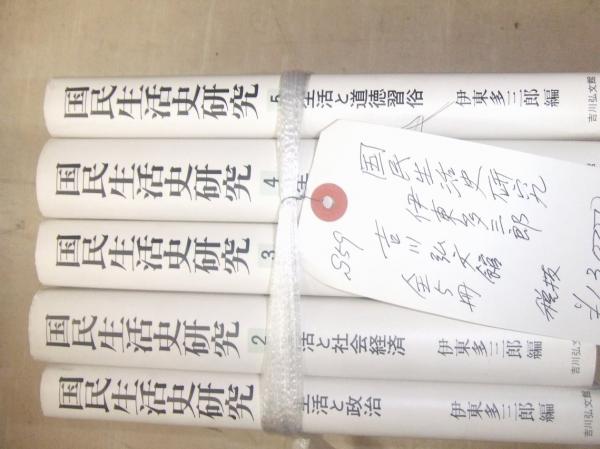 国民生活史研究 5 生活と道徳習俗 伊東多三郎編 吉川弘文館
国民生活史研究 4 生
国民生活史研究 3
国民生活史研究 2 活と社会経済 伊東多三郎編 吉川弘文
国民生活史研究 生活と政治 伊東多三郎編 吉川弘文館
国民生活史研究
伊東多三郎
吉川弘文館
全5冊
税抜